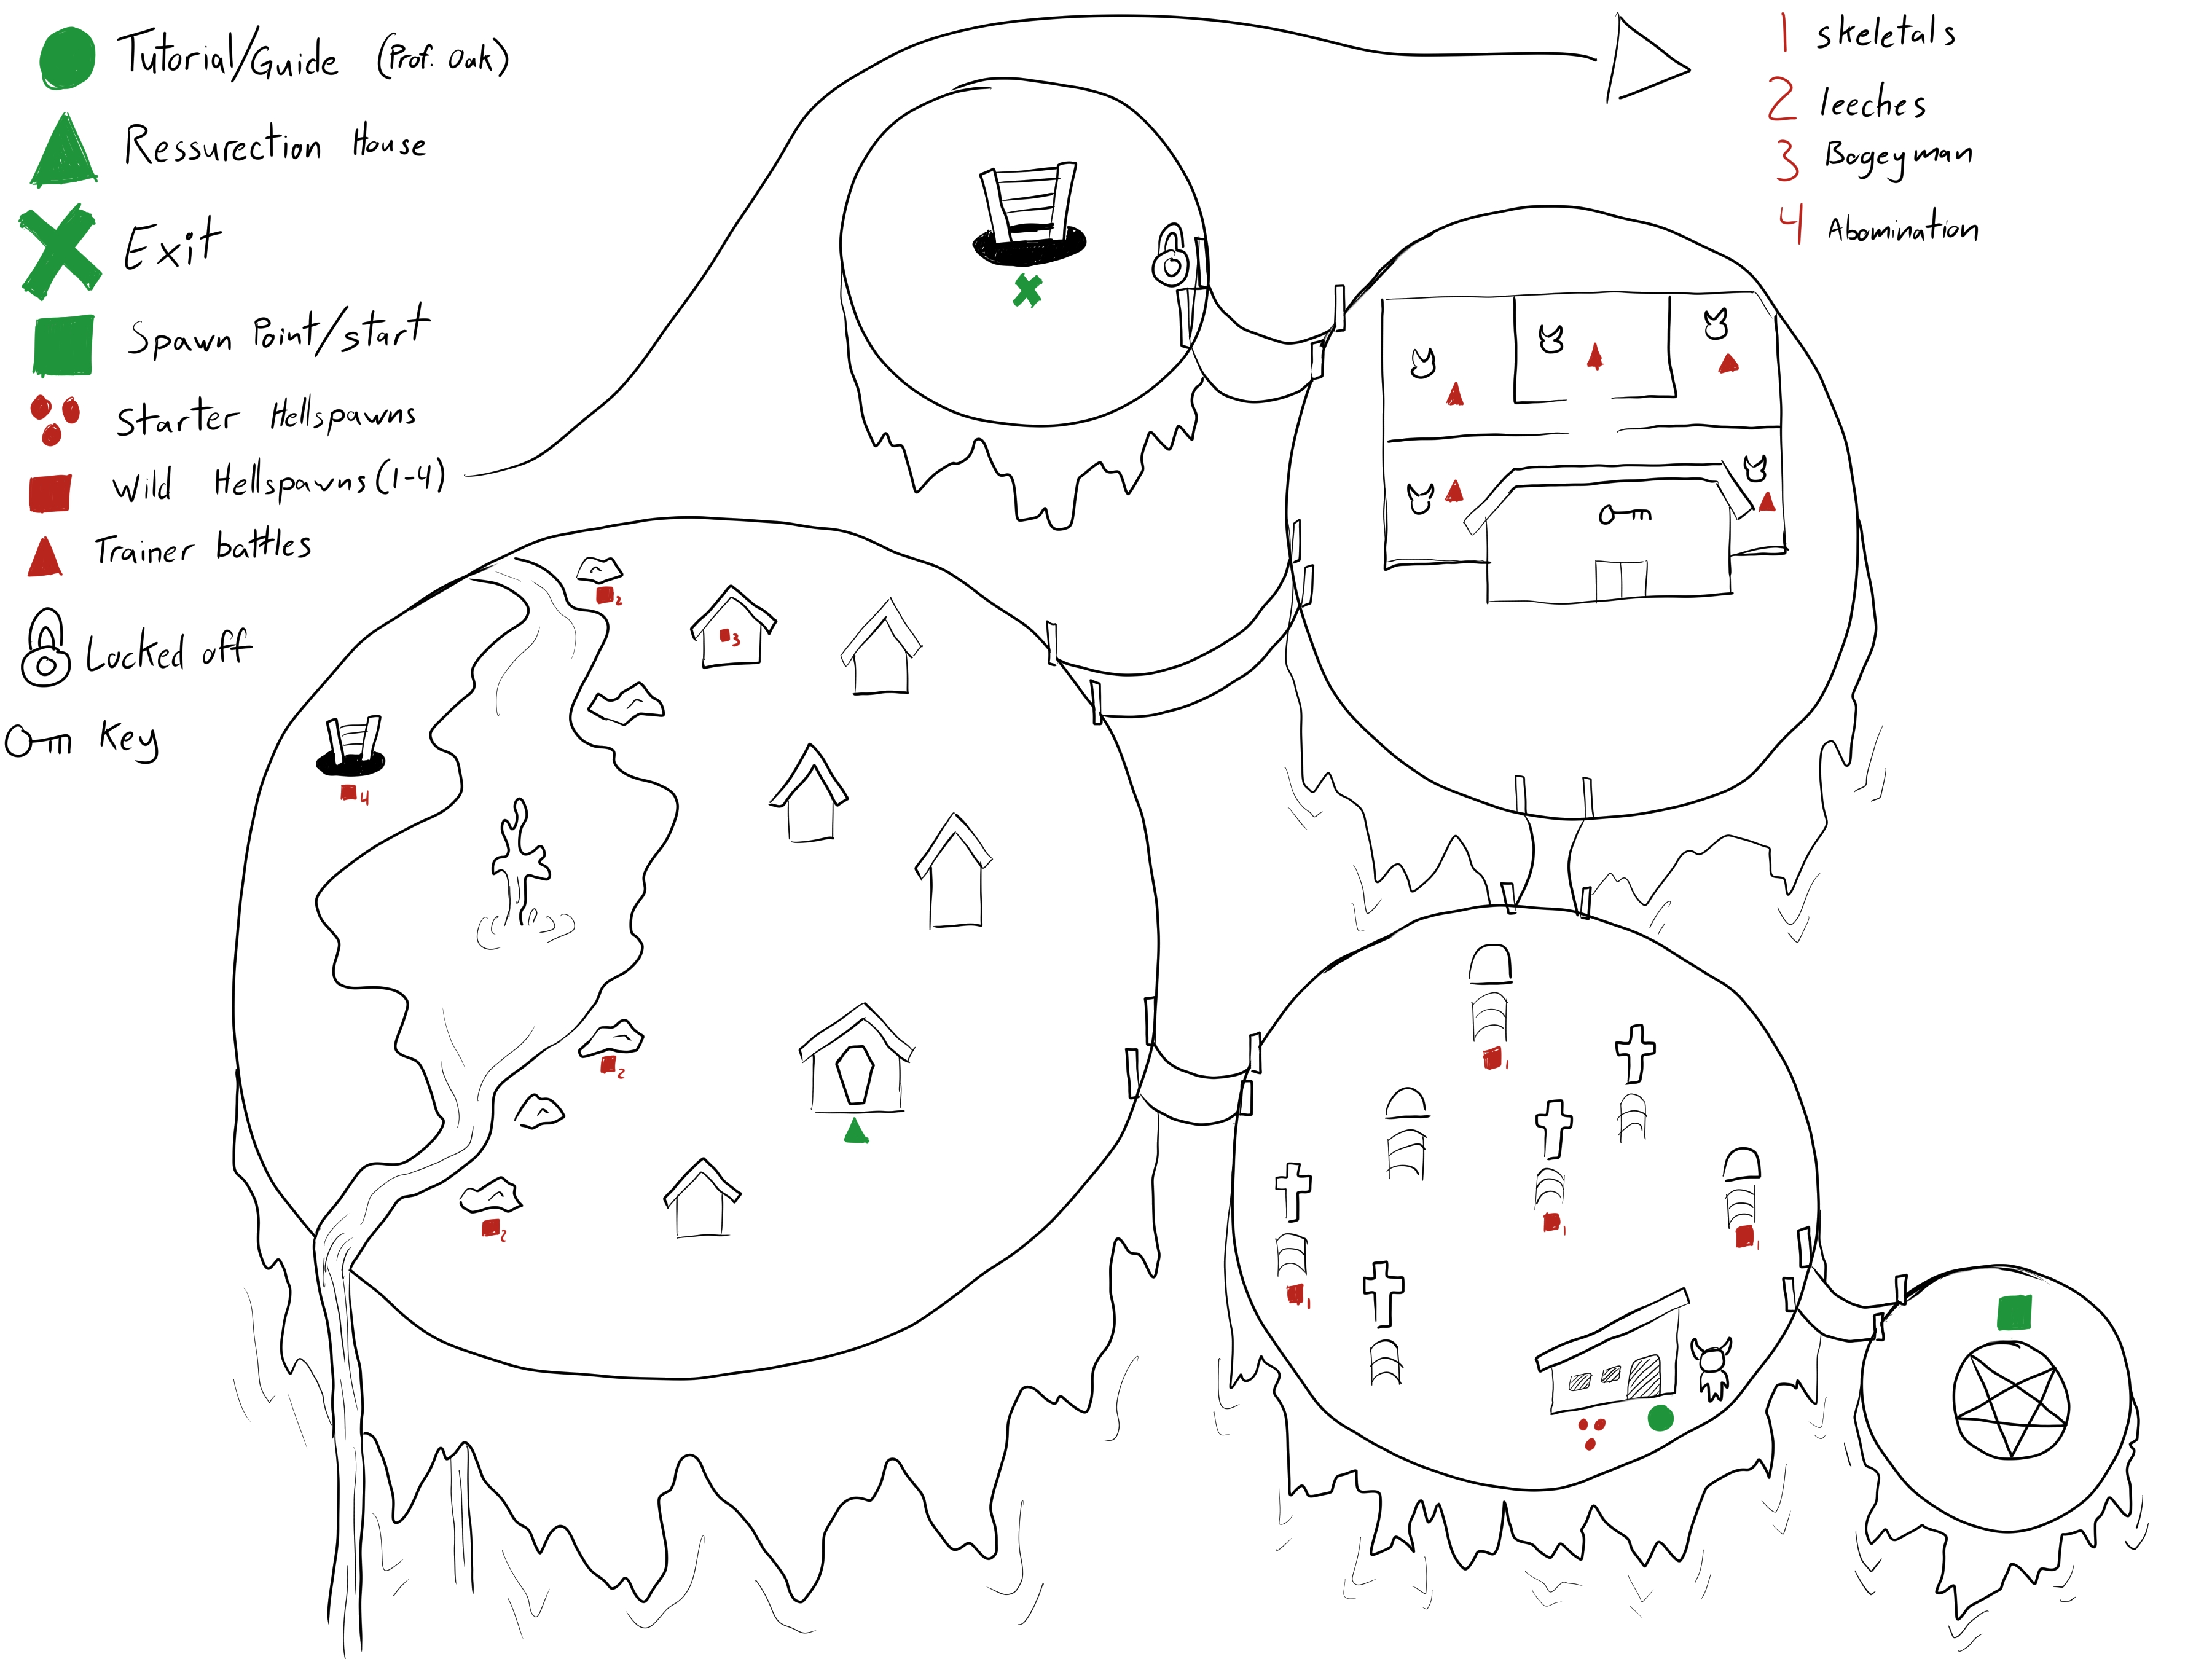 Tutorial/Guide (Prof. Oak)
Ressurection House
Exit
Spawn Point/start
Starter Hellspawns
Wild Hellspawns (1-4)
Trainer battles
Locked off
Key
1 skeletals
2 leeches
3 Bogeyman
4 Abomination
2
3
4
2
2
1
1
1
1